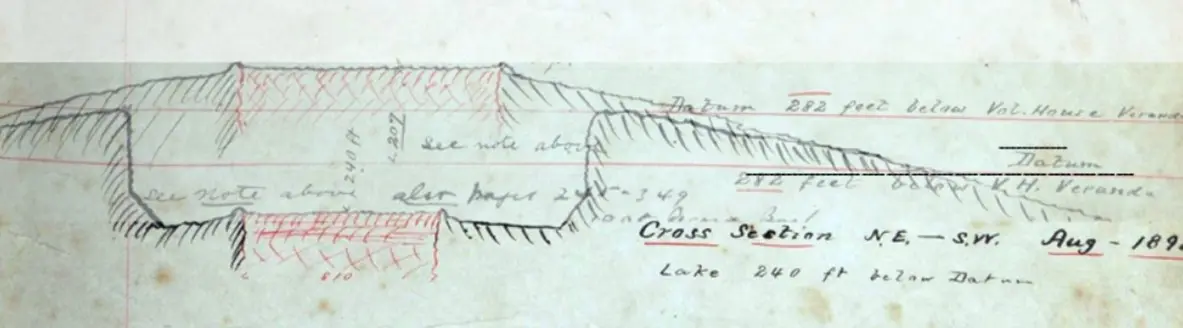 Datum 282 feet below Vol. House Veranda
207
240 ft
see note above
Datum
see Note above also pages 349
282 feet below V.H. Veranda
Cross Section N.E. — S.W. Aug - 189
810
Lake 240 ft below Datum